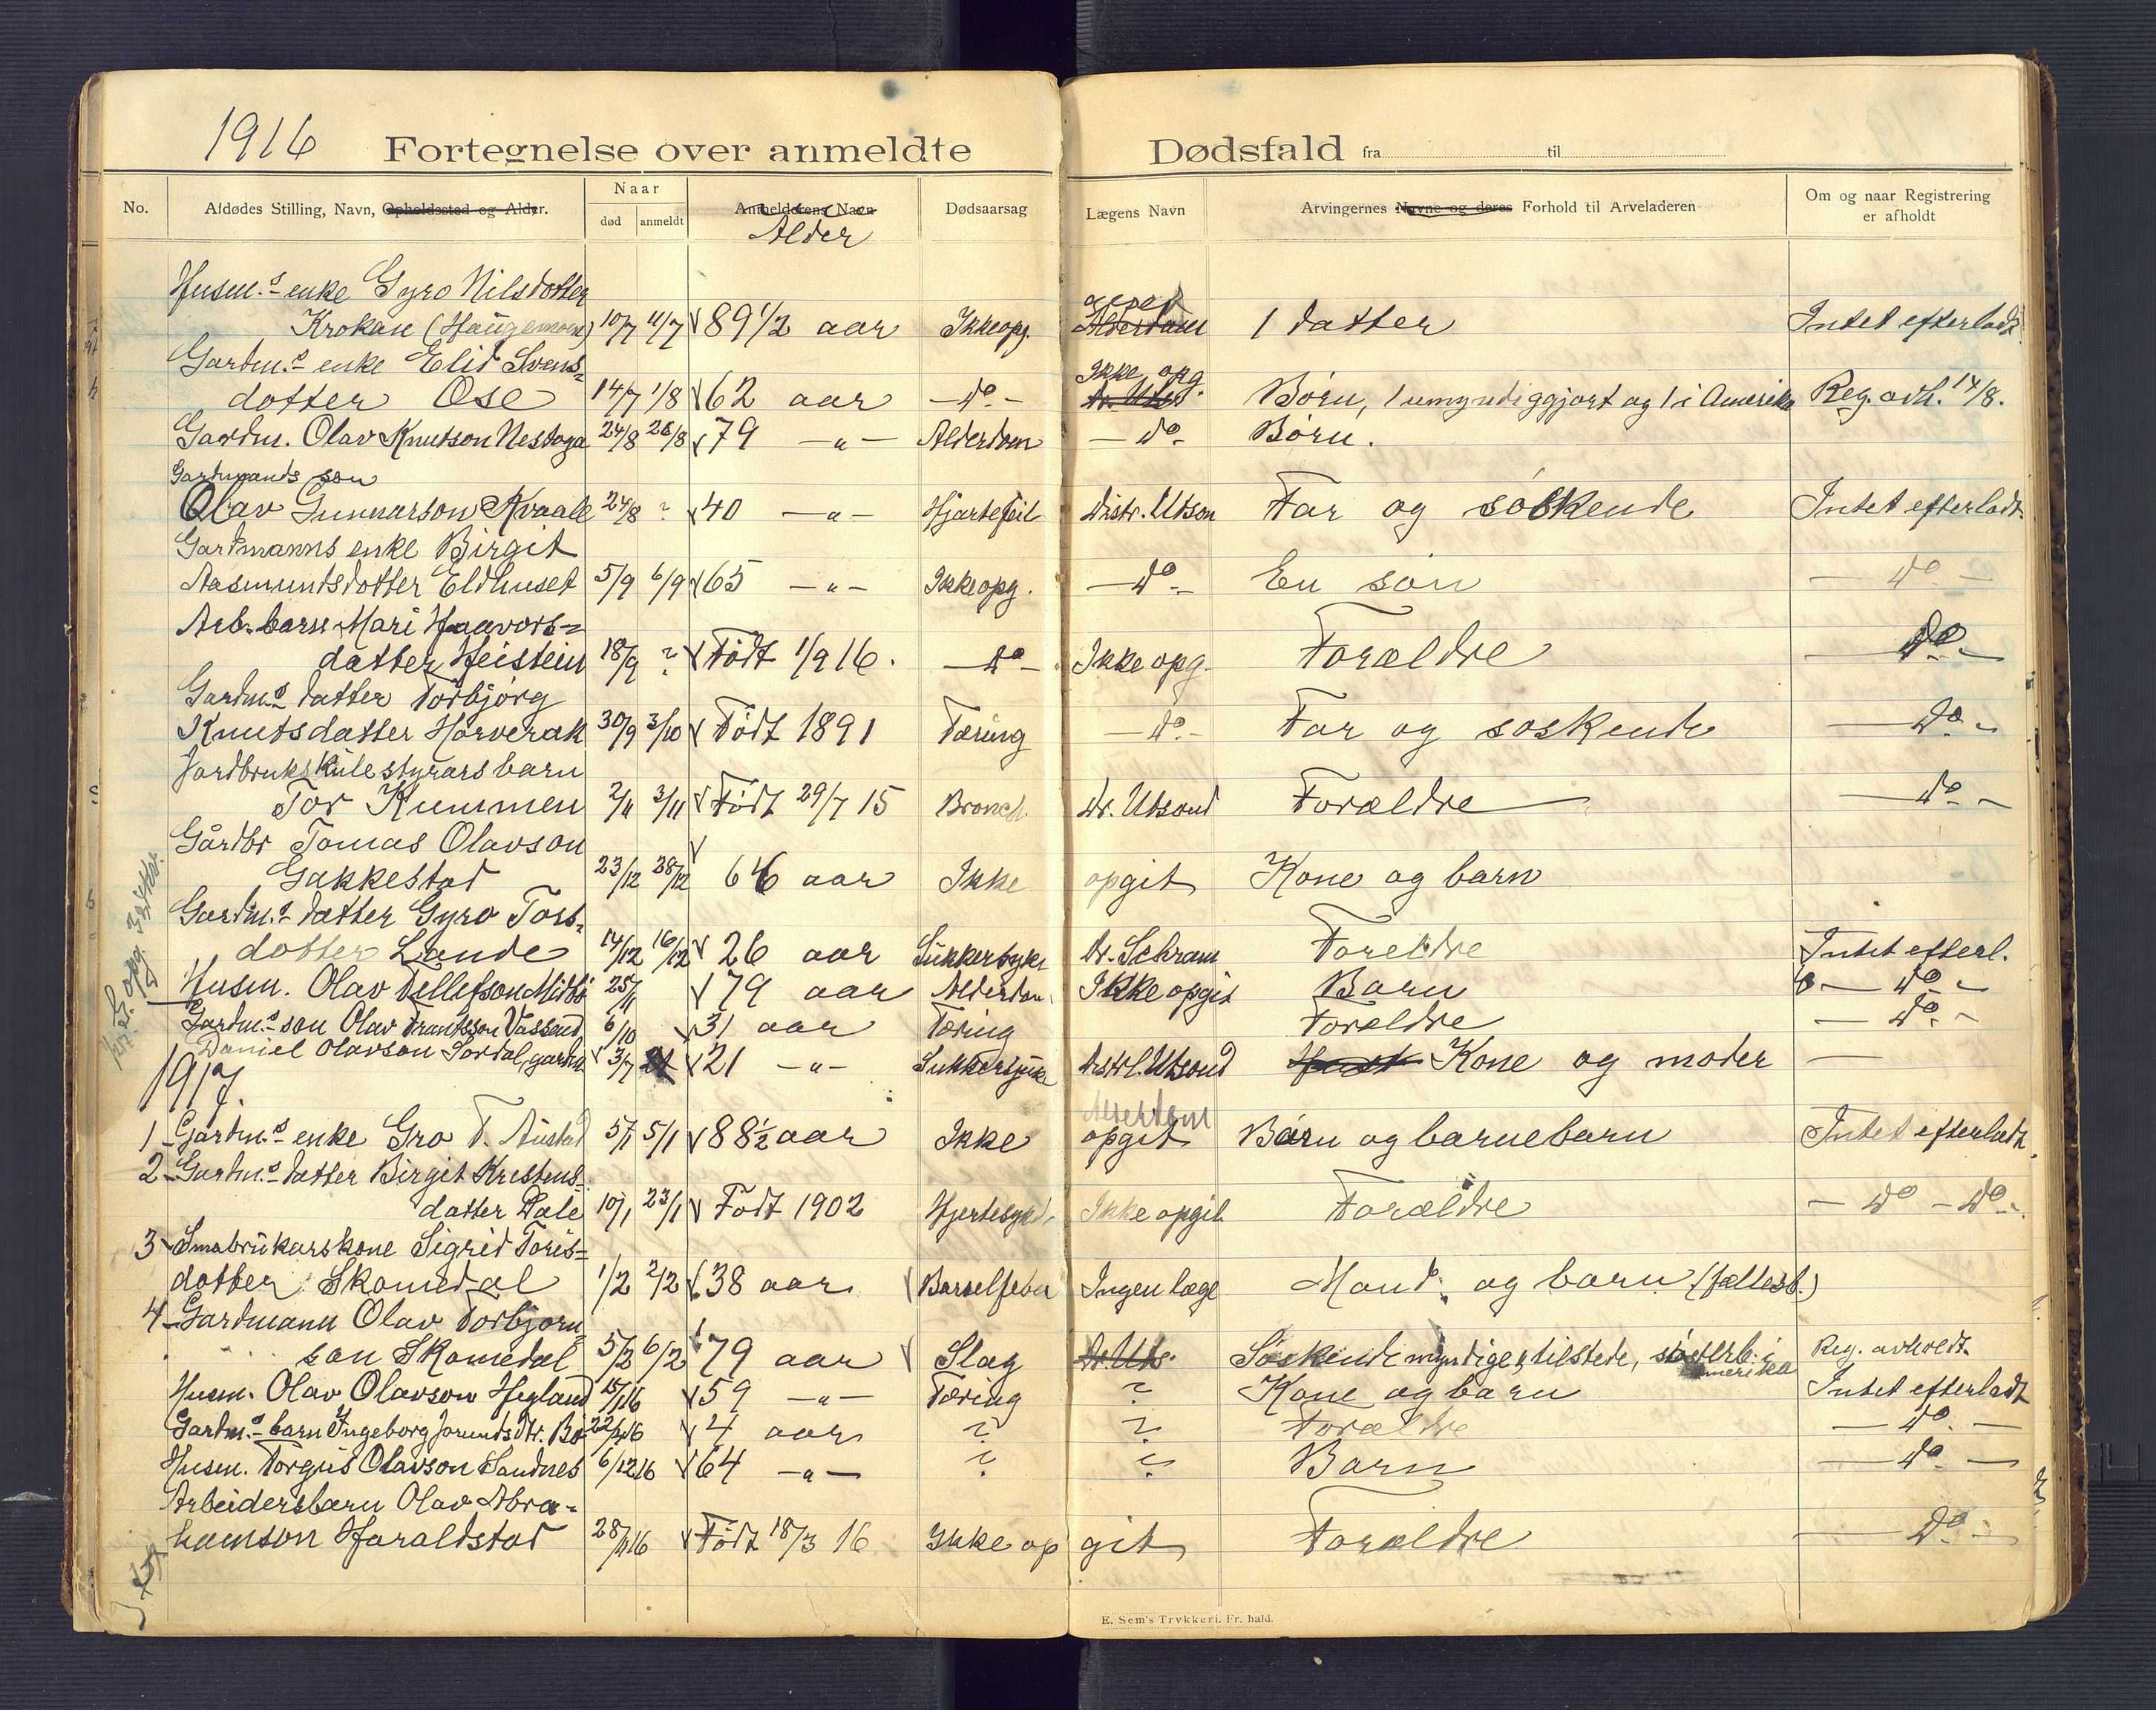 1916 Fortegnelse over anmeldte Dødsfald fra til
No. Afdødes Stilling, Navn, Opholdssted og Alder. Naar død anmeldt Anmelderens Navn Alder Dødsaarsag Lægens Navn Arvingernes Navne og deres Forhold til Arveladeren Om og naar Registrering er afholdt
Husm.s enke Gyro Nilsdotter
Krokan (Haugemoen) 10/7 11/7 √ 89 1/2 aar Ikke opg. Alderdom 1 datter Intet efterladt
Gardm.s enke Elid Svens-
dotter Ose 14/7 1/8 √ 62 aar — do — Ikke opg. Dr. Utsond Børn, 1 umyndiggjort og 1 i Amerika Reg. avh. 14/8.
Gardm. Olav Knutson Nestoga 24/8 28/8 √ 79 — " — Alderdom — do — Børn.
Gardmands son
Olav Gunnarson Kvaale 24/8 ? √ 40 — " — Hjartefeil distr. Utson Far og søskende Intet efterladt.
Gardmanns enke Birgit
Aasmundsdotter Eldhuset 5/9 6/9 √ 65 — " — Ikke opg. — do — En søn — do —
Arb. barn Mari Haavors-
datter Heistein 18/9 ? √ Født 1/9 16. — do — Ikke opg. Forældre — do —
Gardm.s datter Torbjørg
Knutsdatter Harverak 30/9 3/10 √ Født 1891 Tæring — do — Far og søskende — do —
Jordbrukskulestyrars barn
Tor Kummen 2/11 3/11 √ Født 29/7 15 Bronch. dr. Utsond Forældre — do —
Gårdbr Tomas Olavson √
Gakkestad 23/12 28/12 66 aar Ikke opgit Kone og barn
Gardm.s datter Gyro Tors-
dotter Lande 14/12 16/12 √ 26 aar Sukkersyke Dr. Schram Foreldre Intet efterl.
Husm. Olav Tellefson Midbø 25/11 √ 79 aar Alderdom Ikke opgit Barn — do —
Gardm.s son Olav Frantsson Vassend 6/10 √ 31 aar Tæring Foreldre — do —
Daniel Olavson Sordal, gardm √ 3/7 √ 21 — " — Sukkersjuke distrl. Utsond Kone og moder —
1917.
1 Gardm.s enke Gro T. Austad 5/1 5/1 √ 88 1/2 aar Ikke opgit Alderdom Børn og barnebarn Intet efterladt.
2 - Gardm.s datter Birgit Kristens-
datter Dale 10/1 23/1 √ Født 1902 Hjertesykd. Ikke opgit Forældre — do — do —
3 - Smabrukarskone Sigrid Toris-
dotter Skomedal 1/2 2/2 √ 38 aar Barselfeber Ingen læge Mand og barn (fællesb.)
4 - Gardmann Olav Torbjorn-
son Skomedal 5/2 6/2 √ 79 aar √ Slag Dr. Uts. Søskende myndige, tilstede, søsterb. i Amerika Reg. avholdt.
Husm. Olav Olavson Hegland 15/1 16 √ 59 — " — Tæring ? Kone og barn Intet efterladt
Gardm.s barn Ingeborg Jorundsdtr. Bø 22/4 16 √ 4 aar ? ? Forældre — do —
Husm. Torgus Olavson Sandnes 6/12 16 √ 64 — " — ? ? Barn — do —
Arbeidersbarn Olav Abra-
hamson Haraldstad 28/4 16 √ Født 18/3 16 Ikke opgit Forældre — do —
E. Sem's Trykkeri. Fr. hald.